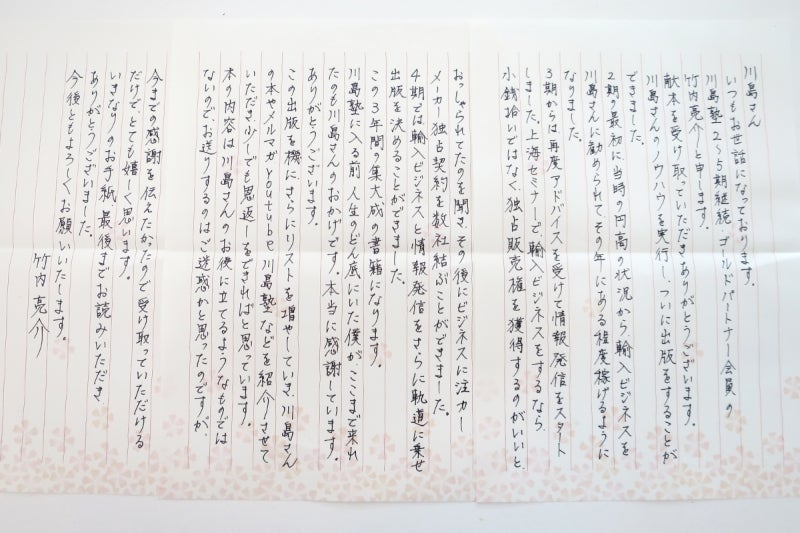 川島さん
いつもお世話になっております。
川島塾2〜5期継続 ゴールドパートナー会員の
竹内亮介と申します。
献本を受け取っていただきありがとうございます。
川島さんのノウハウを実行し、ついに出版をすることが
できました。
2期の最初に、当時の円高の状況から輸入ビジネスを
川島さんに勧められて、その年にある程度稼げるように
なりました。
3期からは再度アドバイスを受けて情報発信をスタート
しました。上海セミナーで、輸入ビジネスをするなら、
小銭拾いではなく、独占販売権を獲得するのがいいと、
おっしゃられてたのを聞き、その後にビジネスに注力し
メーカー独占契約を数社結ぶことができました。
4期では輸入ビジネスと情報発信をさらに軌道に乗せ
出版を決めることができました。
この3年間の集大成の書籍になります。
川島塾に入る前、人生のどん底にいた僕が、ここまで来れ
たのも川島さんのおかげです。本当に感謝しています。
ありがとうございます。
この出版を機に、さらにリストを増やしていき、川島さん
の本やメルマガ、youtube、川島塾などを紹介させて
いただき少しでも恩返しをできればと思っています。
本の内容は川島さんのお役に立てるようなものでは
ないので、お送りするのはご迷惑かと思ったのですが、
今までの感謝を伝えたかたので受け取っていただける
だけでとても嬉しく思います。
いきなりのお手紙、最後までお読みいただき
ありがとうございました。
今後ともよろしくお願いいたします。
竹内亮介